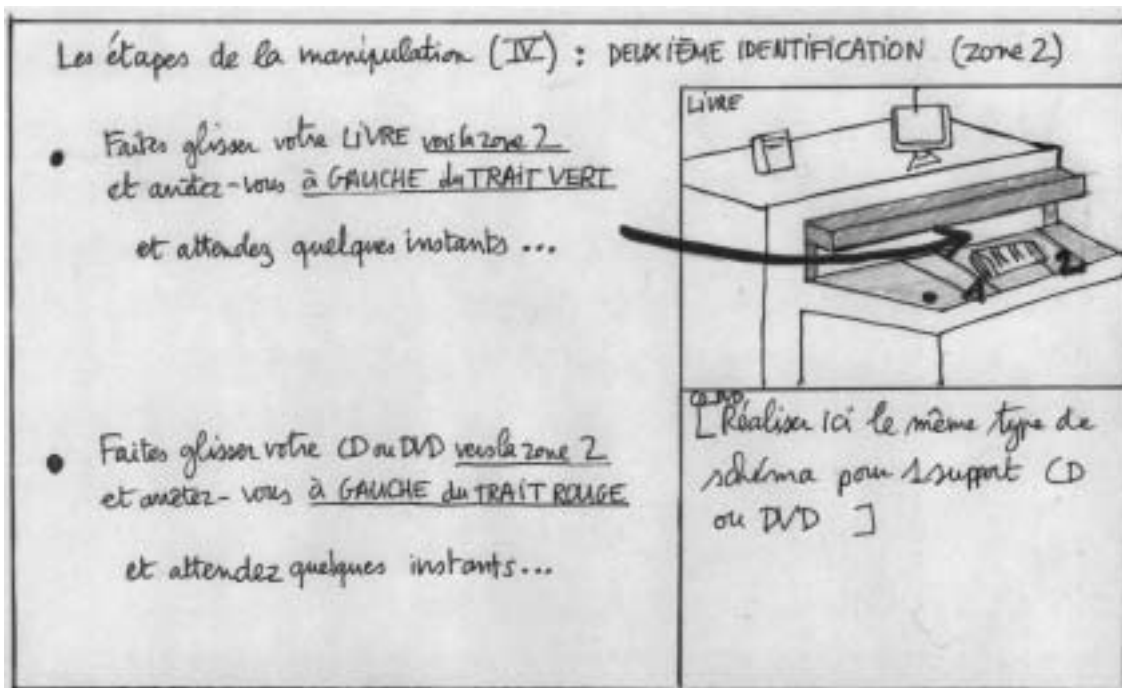 Les étapes de la manipulation (IV) : DEUXIÈME IDENTIFICATION (zone 2)
• Faites glisser votre LIVRE vers la zone 2
et arrêtez-vous à GAUCHE du TRAIT VERT
et attendez quelques instants ...
LIVRE
1
2
• Faites glisser votre CD ou DVD vers la zone 2
et arrêtez-vous à GAUCHE du TRAIT ROUGE
et attendez quelques instants...
[Réaliser ici le même type de
schéma pour 1 support CD
ou DVD ]